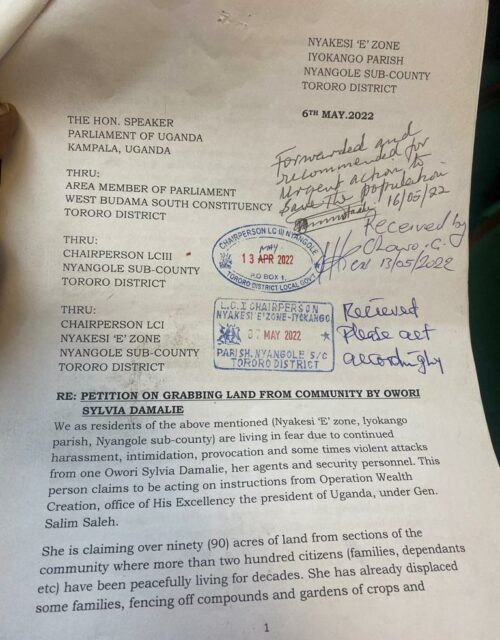 NYAKESI 'E' ZONE
IYOKANGO PARISH
NYANGOLE SUB-COUNTY
TORORO DISTRICT
6TH MAY.2022
THE HON. SPEAKER
PARLIAMENT OF UGANDA
KAMPALA, UGANDA
Forwarded and
recommended for
urgent action to
save the population
16/05/22
THRU:
AREA MEMBER OF PARLIAMENT
WEST BUDAMA SOUTH CONSTITUENCY
TORORO DISTRICT
Received by
13/05/2022
THRU:
CHAIRPERSON LCIII
NYANGOLE SUB-COUNTY
TORORO DISTRICT
CHAIRPERSON LC III NYANGOLE
MAY
13 APR 2022
P.O BOX 1,
TORORO DISTRICT LOCAL GOVT
THRU:
CHAIRPERSON LCI
NYAKESI 'E' ZONE
NYANGOLE SUB-COUNTY
TORORO DISTRICT
L.C.I CHAIRPERSON
NYAKESI 'E' ZONE-IYOKANGO
MAY 2022
PARISH. NYANGOLE S/C
TORORO DISTRICT
Recieved
Please act
accordingly
RE: PETITION ON GRABBING LAND FROM COMMUNITY BY OWORI
SYLVIA DAMALIE
We as residents of the above mentioned (Nyakesi 'E' zone, Iyokango
parish, Nyangole sub-county) are living in fear due to continued
harassment, intimidation, provocation and some times violent attacks
from one Owori Sylvia Damalie, her agents and security personnel. This
person claims to be acting on instructions from Operation Wealth
Creation, office of His Excellency the president of Uganda, under Gen.
Salim Saleh.
She is claiming over ninety (90) acres of land from sections of the
community where more than two hundred citizens (families, dependants
etc) have been peacefully living for decades. She has already displaced
some families, fencing off compounds and gardens of crops and
1